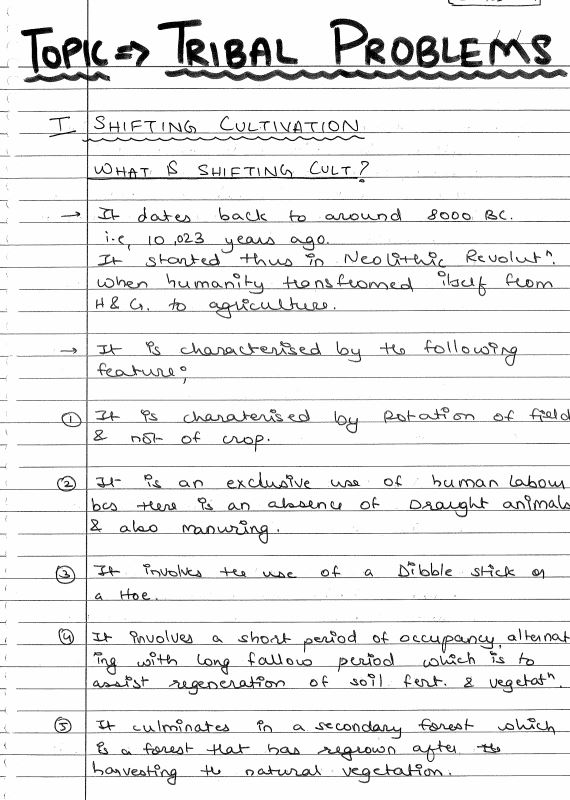 TOPIC => TRIBAL PROBLEMS
I SHIFTING CULTIVATION
WHAT IS SHIFTING CULT.?
→ It dates back to around 8000 BC.
i.e, 10,023 years ago.
It started thus in Neolithic Revolutⁿ.
when humanity transfromed itself from
H & G. to agriculture.
→ It is characterised by the following
feature;
① It is charaterised by Rotation of field
& not of crop.
② It is an exclusive use of human labour
bcs there is an absence of Draught animals
& also manuring.
③ It involves the use of a Dibble stick or
a Hoe.
④ It involves a short period of occupancy, alternat
ing with long fallow period which is to
assist regeneration of soil fert. & vegetatⁿ.
⑤ It culminates in a secondary forest which
is a forest that has regrown after the
harvesting the natural vegetation.